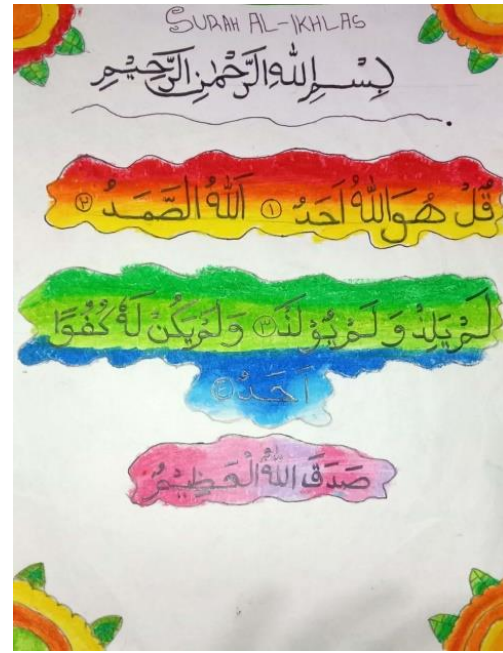 SURAH AL-IKHLAS
بِسْمِ اللهِ الرَّحْمٰنِ الرَّحِيْمِ
قُلْ هُوَ اللهُ اَحَدٌ ① اَللهُ الصَّمَدُ ②
لَمْ يَلِدْ وَ لَمْ يُوْلَدْ ③ وَ لَمْ يَكُنْ لَهٗ كُفُوًا
اَحَدٌ ④
صَدَقَ اللهُ الْعَظِيْمُ